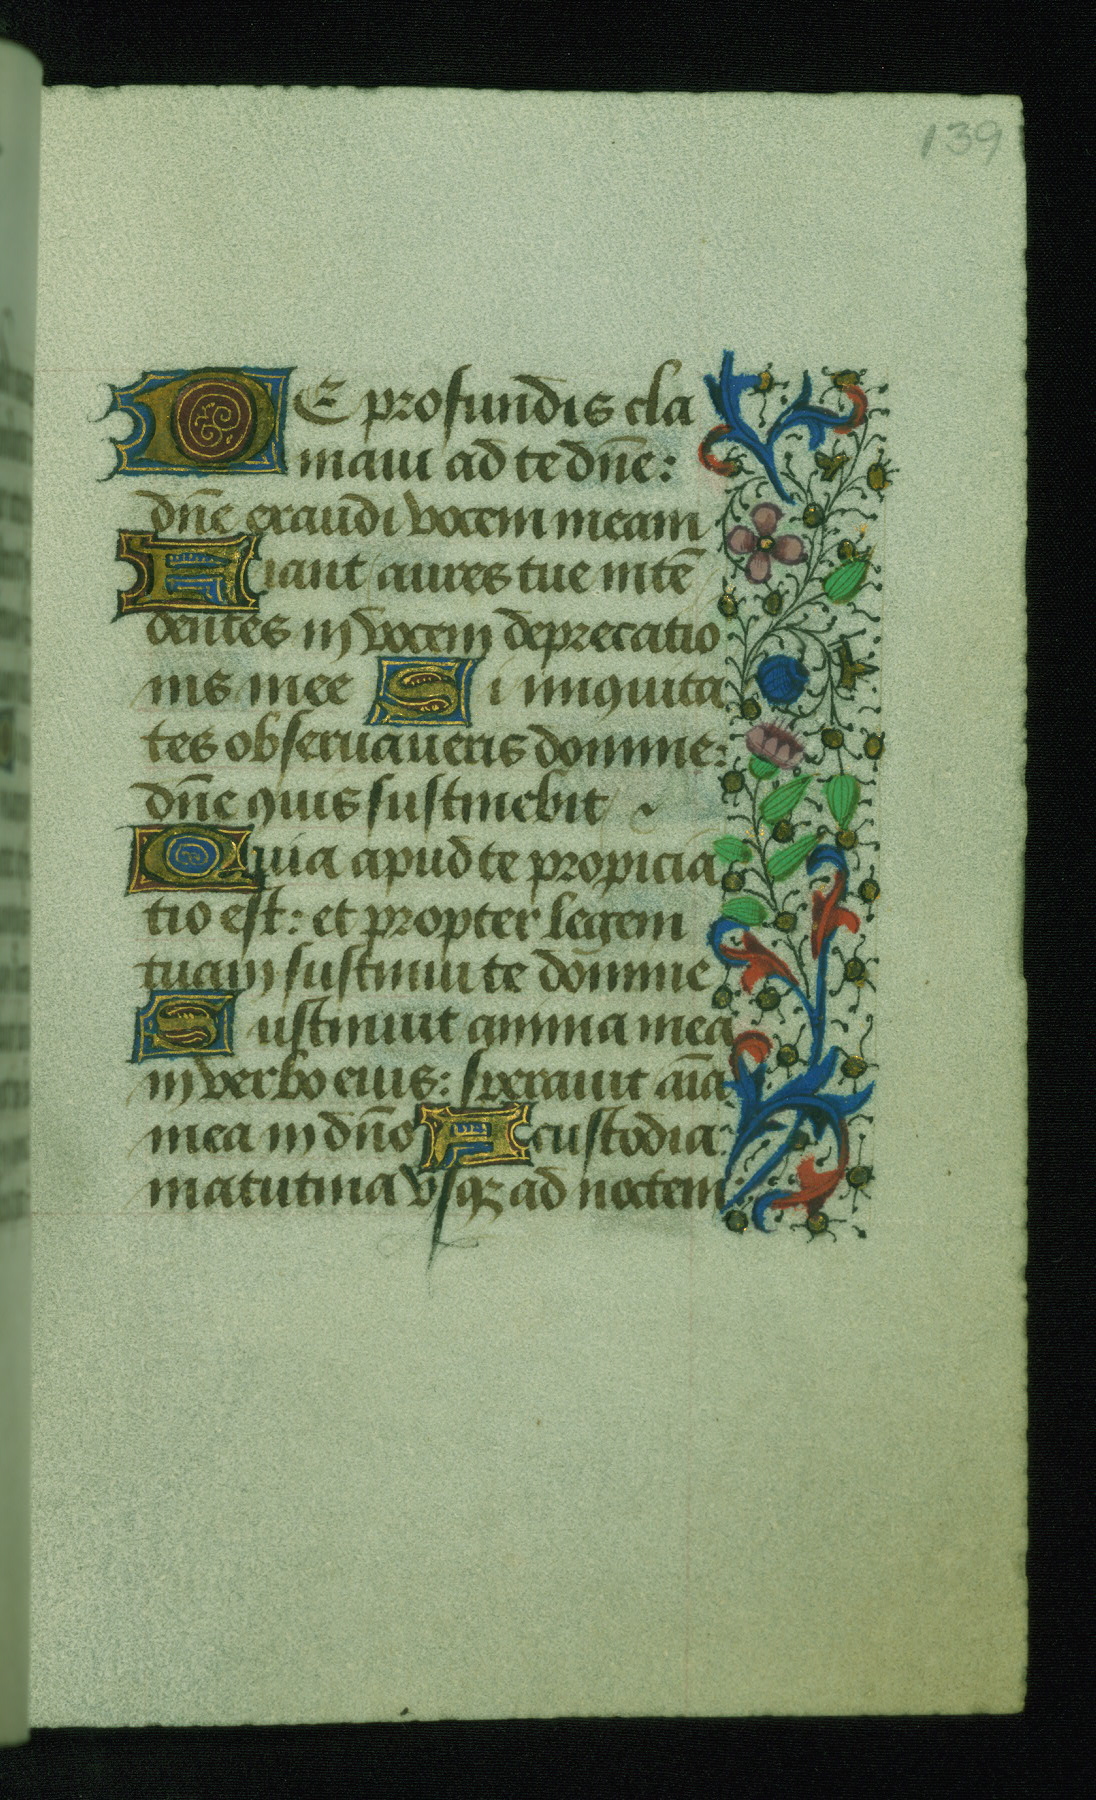 139
DE profundis cla
maui ad te dñe:
dñe exaudi vocem meam
Fiant aures tue intē
dentes in vocem deprecatio
nis mee Si iniquita
tes obseruaueris domine:
dñe quis sustinebit
Quia apud te propicia
tio est: et propter legem
tuam sustinui te domine
Sustinuit anima mea
in verbo eius: sperauit aīa
mea in dño A custodia
matutina vsqz ad noctem